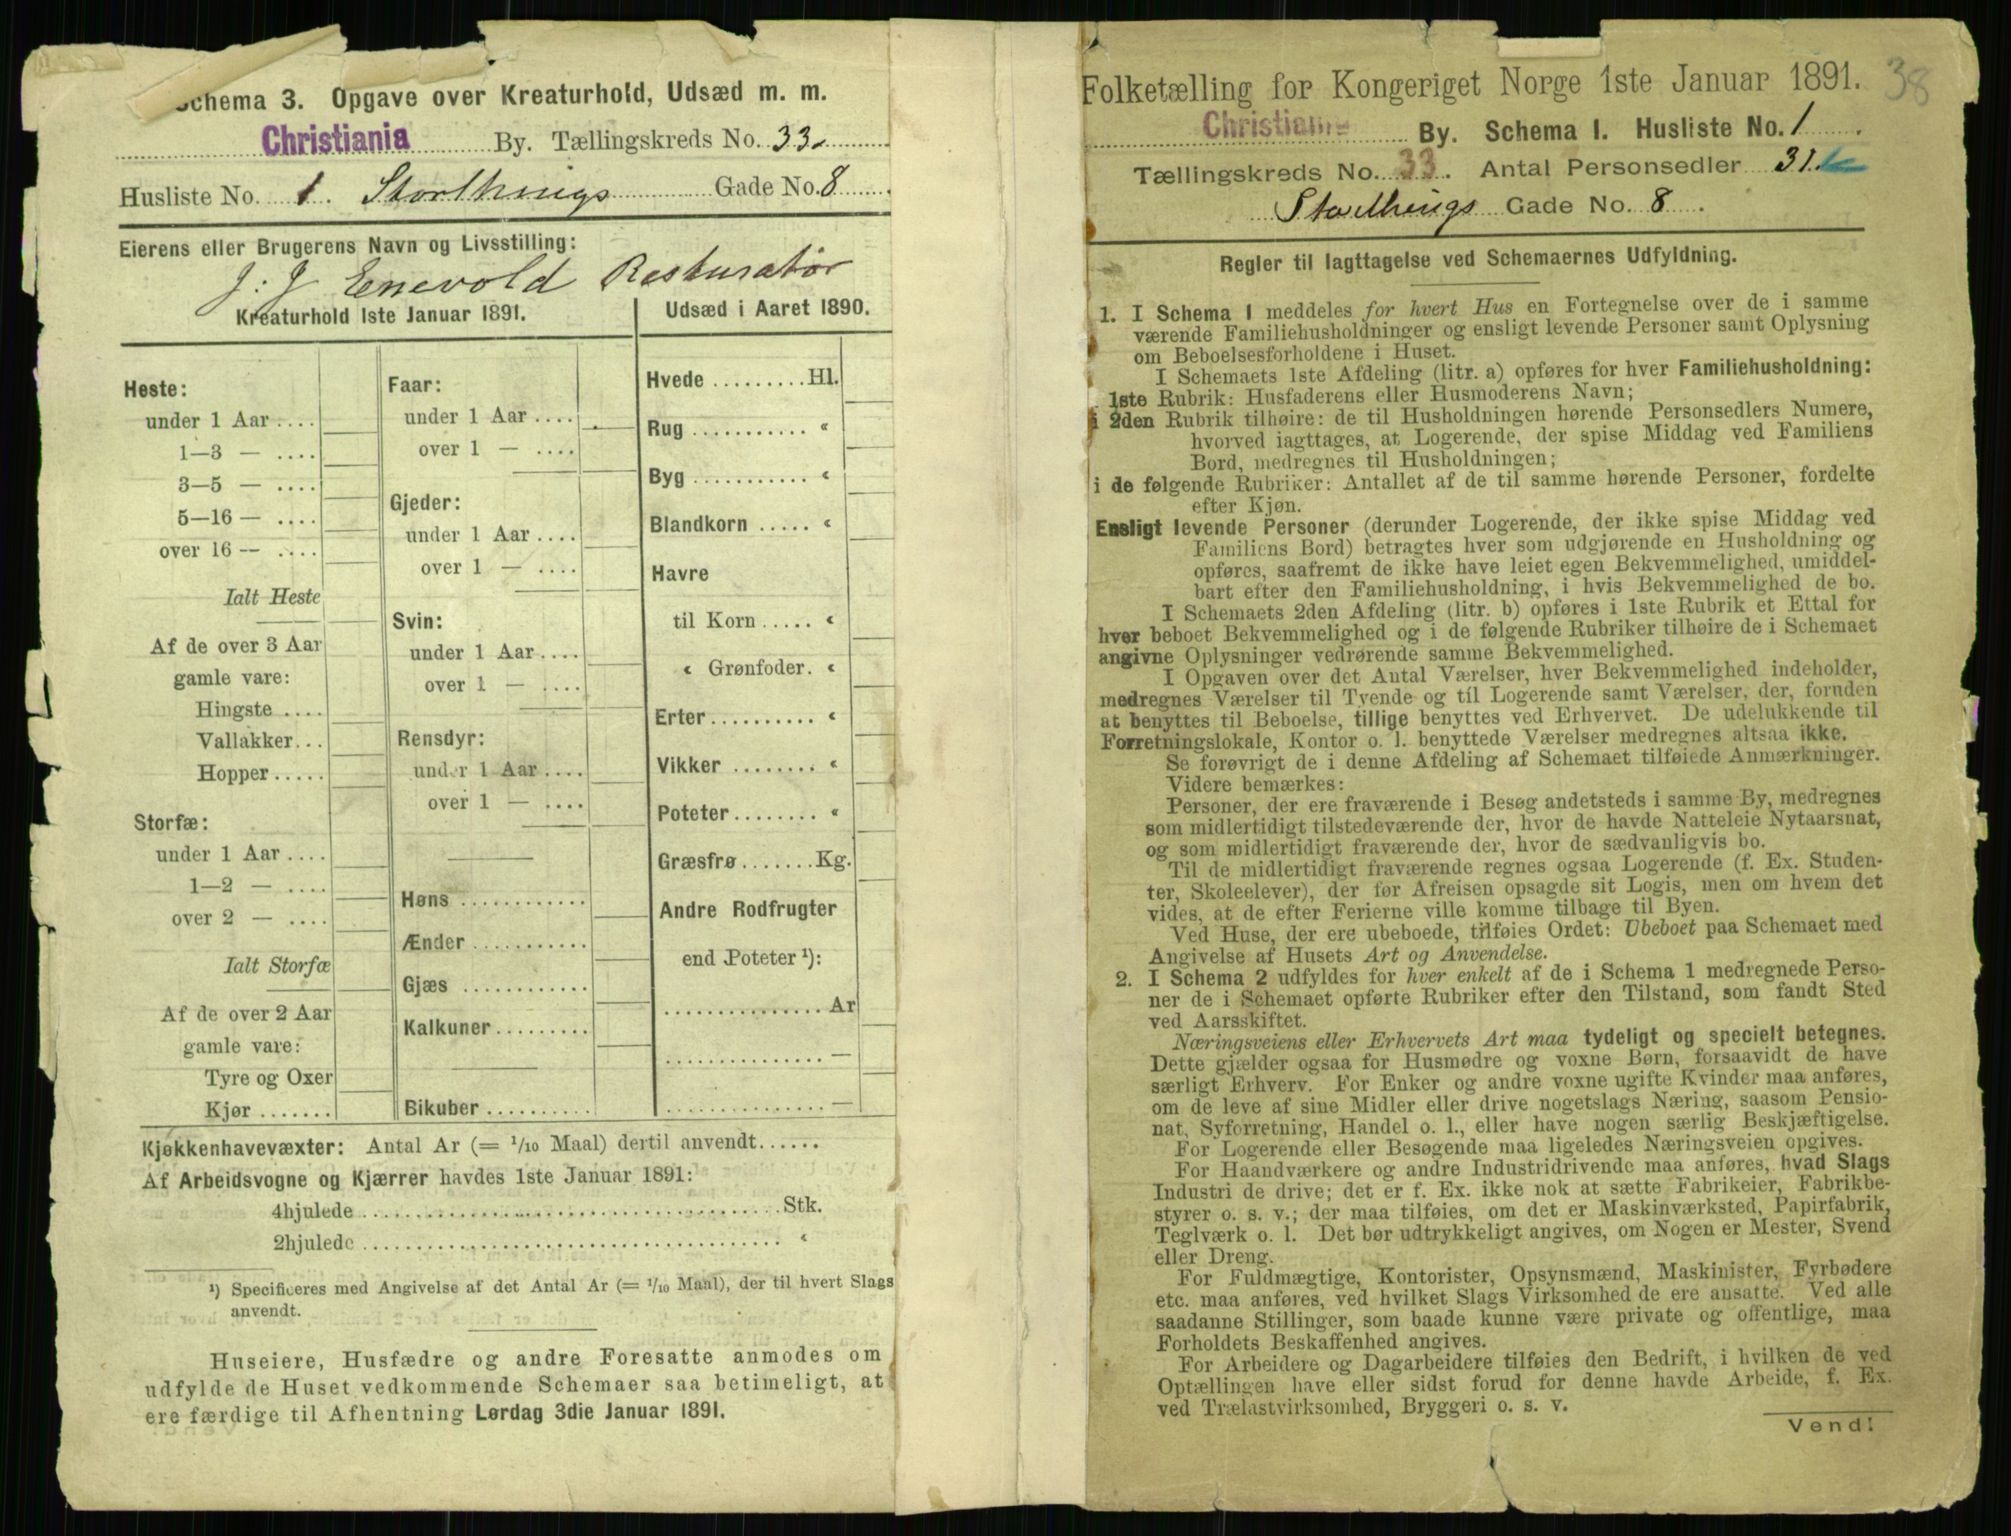 Schema 3. Opgave over Kreaturhold, Udsæd m. m.
Christiania By. Tællingskreds No. 33.
Husliste No. 1. Storthings Gade No. 8
Eierens eller Brugerens Navn og Livsstilling:
J. J Enevold Resturatør
Kreaturhold 1ste Januar 1891.
Heste:
under 1 Aar ....
1—3 — ....
3—5 — ....
5—16 — ....
over 16 — ....
Ialt Heste
Af de over 3 Aar
gamle vare:
Hingste ....
Vallakker...
Hopper.....
Storfæ:
under 1 Aar ....
1—2 — ....
over 2 — ....
Ialt Storfæ
Af de over 2 Aar
gamle vare:
Tyre og Oxer
Kjør .......
Faar:
under 1 Aar ....
over 1 — ....
Gjeder:
under 1 Aar ....
over 1 — ....
Svin:
under 1 Aar ....
over 1 — ....
Rensdyr:
under 1 Aar ....
over 1 — ....
Høns ............
Ænder ...........
Gjæs ............
Kalkuner.........
Bikuber ..........
Udsæd i Aaret 1890.
Hvede .........Hl.
Rug ........... «
Byg ........... «
Blandkorn ..... «
Havre
til Korn ..... «
« Grønfoder. «
Erter .......... «
Vikker ........ «
Poteter........ «
Græsfrø .......Kg.
Andre Rodfrugter
end Poteter ¹):
...............Ar
............... —
............... —
Kjøkkenhavevæxter: Antal Ar (= 1/10 Maal) dertil anvendt......
Af Arbeidsvogne og Kjærrer havdes 1ste Januar 1891:
4hjulede ........................................Stk.
2hjulede ........................................ «
¹) Specificeres med Angivelse af det Antal Ar (= 1/10 Maal), der til hvert Slags
anvendt.
Huseiere, Husfædre og andre Foresatte anmodes om
udfylde de Huset vedkommende Schemaer saa betimeligt, at
ere færdige til Afhentning Lørdag 3die Januar 1891.
Folketælling for Kongeriget Norge 1ste Januar 1891. 38
Christiania By. Schema 1. Husliste No. 1.
Tællingskreds No. 33. Antal Personsedler 31.
Storthings Gade No. 8.
Regler til Iagttagelse ved Schemaernes Udfyldning.
1. I Schema 1 meddeles for hvert Hus en Fortegnelse over de i samme
værende Familiehusholdninger og ensligt levende Personer samt Oplysning
om Beboelsesforholdene i Huset.
I Schemaets 1ste Afdeling (litr. a) opføres for hver Familiehusholdning:
1ste Rubrik: Husfaderens eller Husmoderens Navn;
i 2den Rubrik tilhøire: de til Husholdningen hørende Personsedlers Numere,
hvorved iagttages, at Logerende, der spise Middag ved Familiens
Bord, medregnes til Husholdningen;
i de følgende Rubriker: Antallet af de til samme hørende Personer, fordelte
efter Kjøn.
Ensligt levende Personer (derunder Logerende, der ikke spise Middag ved
Familiens Bord) betragtes hver som udgjørende en Husholdning og
opføres, saafremt de ikke have leiet egen Bekvemmelighed, umiddel-
bart efter den Familiehusholdning, i hvis Bekvemmelighed de bo.
I Schemaets 2den Afdeling (litr. b) opføres i 1ste Rubrik et Ettal for
hver beboet Bekvemmelighed og i de følgende Rubriker tilhøire de i Schemaet
angivne Oplysninger vedrørende samme Bekvemmelighed.
I Opgaven over det Antal Værelser, hver Bekvemmelighed indeholder,
medregnes Værelser til Tyende og til Logerende samt Værelser, der, foruden
at benyttes til Beboelse, tillige benyttes ved Erhvervet. De udelukkende til
Forretningslokale, Kontor o. l. benyttede Værelser medregnes altsaa ikke.
Se forøvrigt de i denne Afdeling af Schemaet tilføiede Anmærkninger.
Videre bemærkes:
Personer, der ere fraværende i Besøg andetsteds i samme By, medregnes
som midlertidigt tilstedeværende der, hvor de havde Natteleie Nytaarsnat,
og som midlertidigt fraværende der, hvor de sædvanligvis bo.
Til de midlertidigt fraværende regnes ogsaa Logerende (f. Ex. Studen-
ter, Skoleelever), der før Afreisen opsagde sit Logis, men om hvem det
vides, at de efter Ferierne ville komme tilbage til Byen.
Ved Huse, der ere ubeboede, tilføies Ordet: Ubeboet paa Schemaet med
Angivelse af Husets Art og Anvendelse.
2. I Schema 2 udfyldes for hver enkelt af de i Schema 1 medregnede Perso-
ner de i Schemaet opførte Rubriker efter den Tilstand, som fandt Sted
ved Aarsskiftet.
Næringsveiens eller Erhvervets Art maa tydeligt og specielt betegnes.
Dette gjælder ogsaa for Husmødre og voxne Børn, forsaavidt de have
særligt Erhverv. For Enker og andre voxne ugifte Kvinder maa anføres,
om de leve af sine Midler eller drive nogetslags Næring, saasom Pensio-
nat, Syforretning, Handel o. l., eller have nogen særlig Beskjæftigelse.
For Logerende eller Besøgende maa ligeledes Næringsveien opgives.
For Haandværkere og andre Industridrivende maa anføres, hvad Slags
Industri de drive; det er f. Ex. ikke nok at sætte Fabrikeier, Fabrikbe-
styrer o. s. v.; der maa tilføies, om det er Maskinværksted, Papirfabrik,
Teglværk o. l. Det bør udtrykkeligt angives, om Nogen er Mester, Svend
eller Dreng.
For Fuldmægtige, Kontorister, Opsynsmænd, Maskinister, Fyrbødere
etc. maa anføres, ved hvilket Slags Virksomhed de ere ansatte. Ved alle
saadanne Stillinger, som baade kunne være private og offentlige, maa
Forholdets Beskaffenhed angives.
For Arbeidere og Dagarbeidere tilføies den Bedrift, i hvilken de ved
Optællingen have eller sidst forud for denne havde Arbeide, f. Ex.
ved Trælastvirksomhed, Bryggeri o. s. v.
Vend!